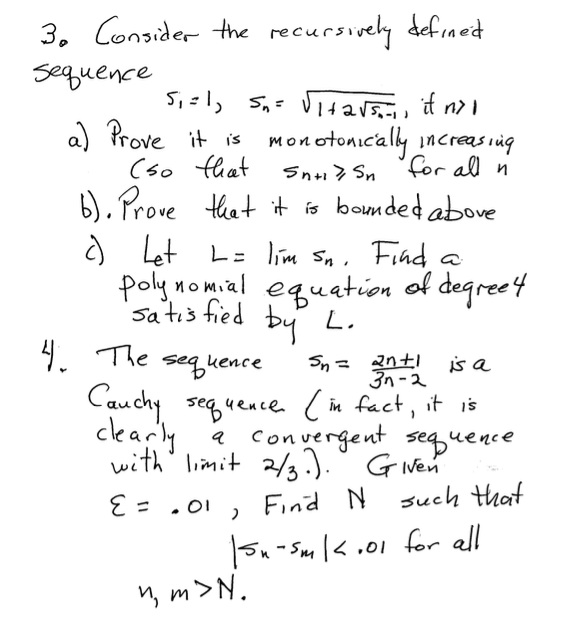 3. Consider the recursively defined
sequence
s₁ = 1, sₙ = √(1+2√sₙ₋₁), if n>1
a) Prove it is monotonically increasing
(so that sₙ₊₁ ≥ sₙ for all n
b). Prove that it is bounded above
c) Let L = lim sₙ. Find a
polynomial equation of degree 4
satisfied by L.
4. The sequence sₙ = (2n+1)/(3n-2) is a
Cauchy sequence (in fact, it is
clearly a convergent sequence
with limit 2/3.). Given
ε = .01, Find N such that
|sₙ - sₘ| < .01 for all
n, m > N.